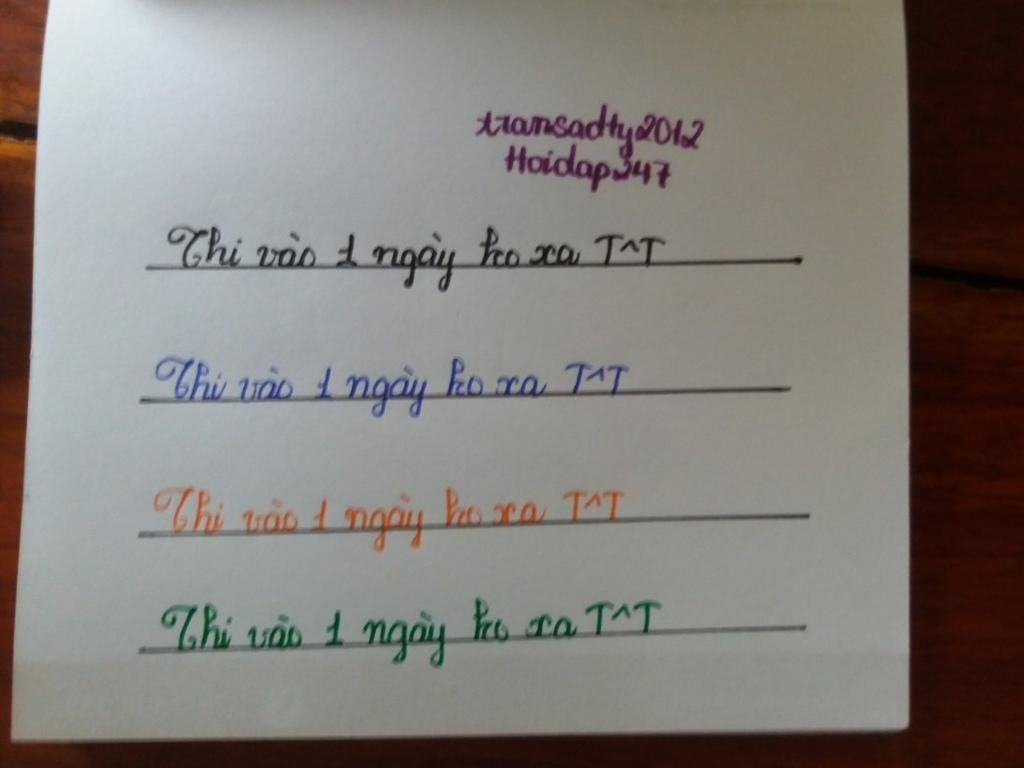 transadty2012
Hoidap247
Thi vào 1 ngày ko xa T^T
Thi vào 1 ngày ko xa T^T
Thi vào 1 ngày ko xa T^T
Thi vào 1 ngày ko xa T^T